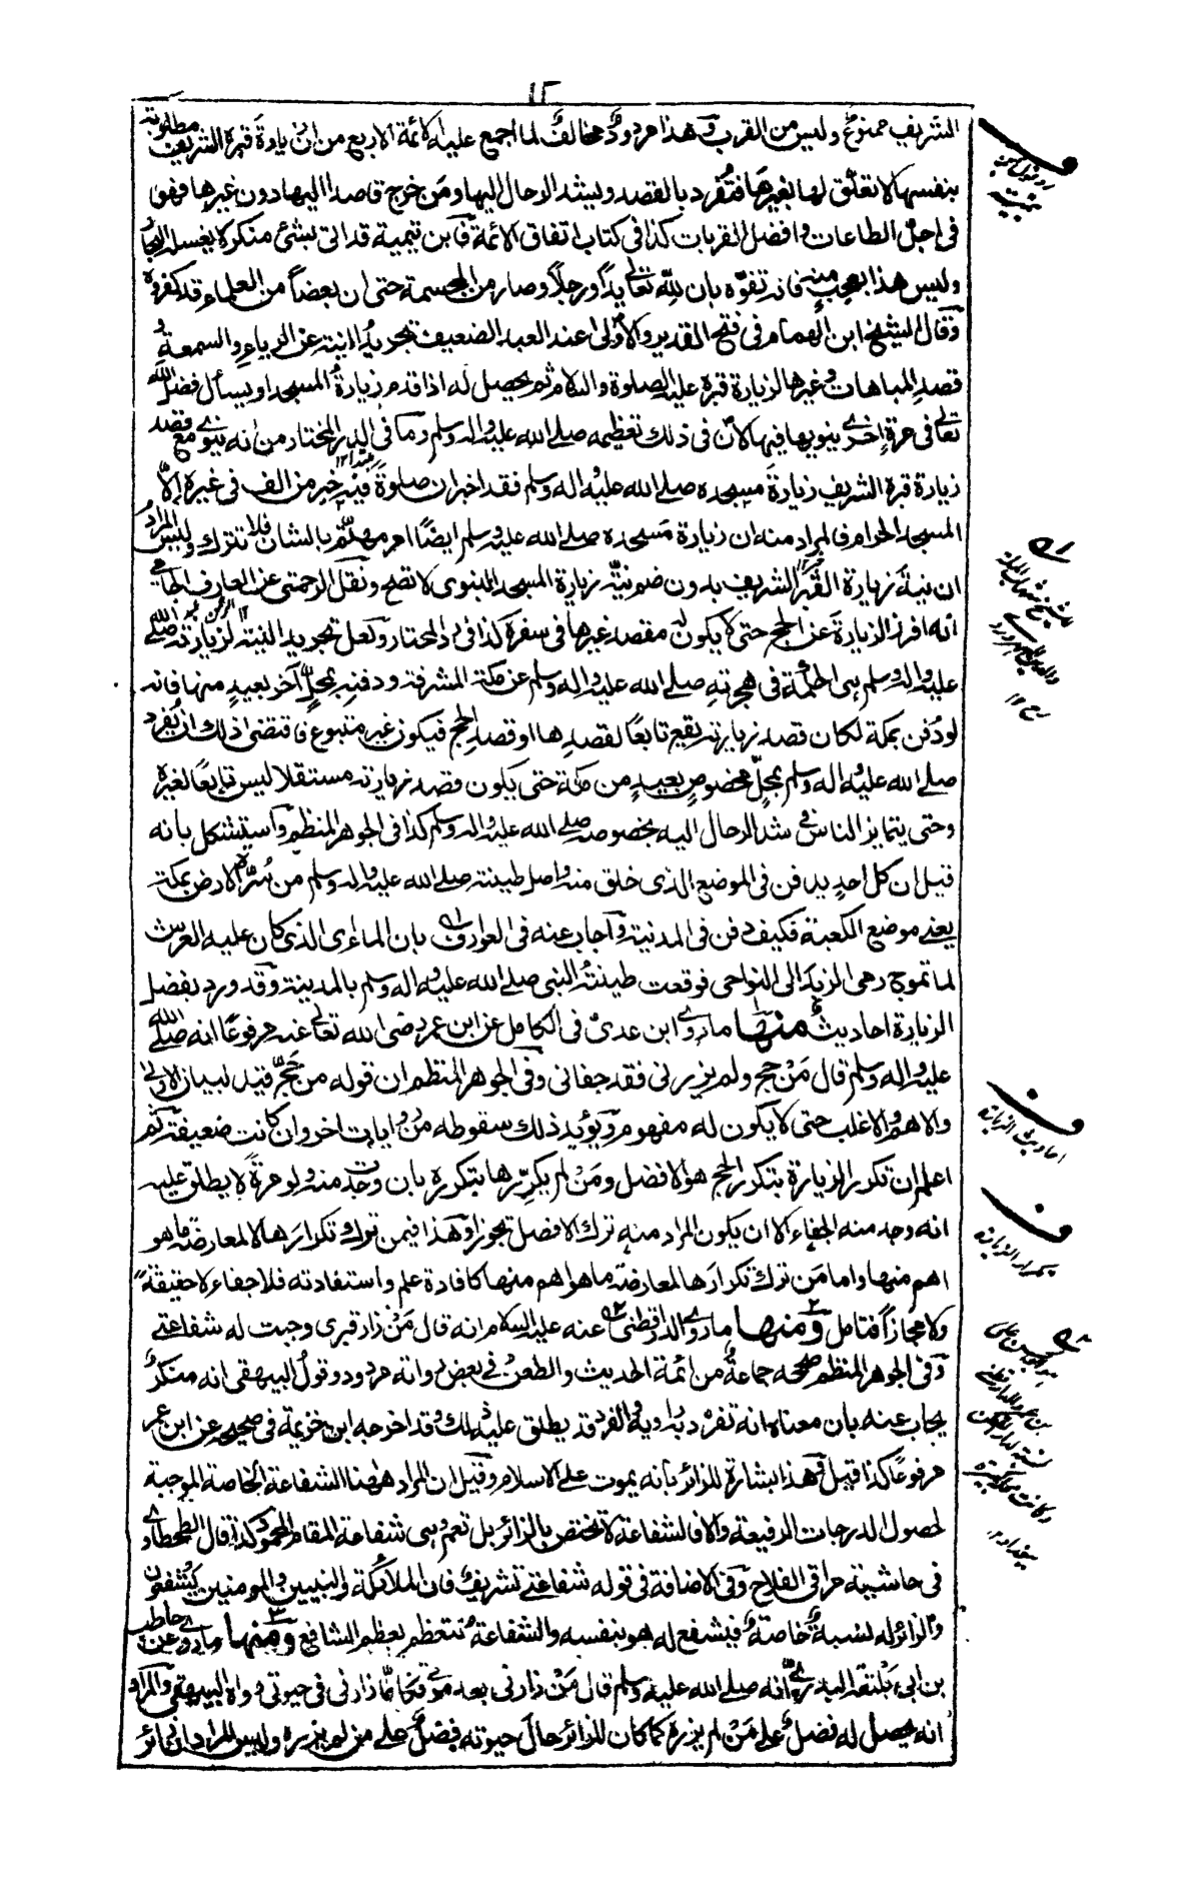 ١٢
الشريف ممنوع وليس من القرب وهذا مردود مخالف لما اجمع عليه الائمة الاربع من ان زيادة قبره الشريف مطلوبة
بنفسها لا تعلق لها بغيرها فتفرد بالقصد ويشد الرحال اليها ومن خرج قاصدا اليها دون غيرها فهو
فى اجل الطاعات وافضل القربات كذا فى كتاب اتفاق الائمة فابن تيمية قد اتى بشئ منكر لا يغسله البحار
وليس هذا بعجب منه فانه تفوه بان لله تعالى يداً ورجلاً وصار من المجسمة حتى ان بعضاً من العلماء قد كفروه
وقال الشيخ ابن الهمام فى فتح القدير والاولى عند العبد الضعيف تجريد النية عن الرياء والسمعة و
قصد المباهات وغيرها لزيارة قبره عليه الصلوة والسلام ثم يحصل له اذا قدم زيارة المسجد او يسأل فضل الله
تعالى فى مرة اخرى ينويها فيها لان فى ذلك تعظيمه صلى الله عليه واله وسلم وما فى الدر المختار من انه ينوى مع قصد
زيارة قبره الشريف زيارة مسجده صلى الله عليه واله وسلم فقد اخبر ان صلوة فيه خير من الف فى غيره الا
المسجد الحرام فالمراد منه ان زيارة مسجده صلى الله عليه وسلم ايضاً امر مهتم بالشان فلا تترك وليس المراد
ان نية زيارة القبر الشريف بدون ضم نية زيارة المسجد النبوى لا تصح ونقل الرحمتى عن العارف الجامى
انه افرز الزيارة عن الحج حتى لا يكون له مقصد غيرها فى سفره كذا فى رد المحتار ولعل تجريد النية لزيارته صلى الله
عليه واله وسلم هى الحكمة فى هجرته صلى الله عليه واله وسلم عن مكة المشرفة ودفنه بمحل آخر بعيد منها فانه
لو دفن بمكة لكان قصد زيارته يقع تابعاً لقصدها او قصد الحج فيكون غير متبوع فاقتضى ذلك ان يفرد
صلى الله عليه واله وسلم بمحل مخصوص بعيد من مكة حتى يكون قصد زيارته مستقلا ليس تابعاً لغيره
وحتى يتمايز الناس فى شد الرحال اليه بخصوصه صلى الله عليه واله وسلم كذا فى الجوهر المنظم واستشكل بانه
قيل ان كل احد يدفن فى الموضع الذى خلق منه واصل طينته صلى الله عليه واله وسلم من سرة الارض بمكة
يعنى موضع الكعبة فكيف دفن فى المدنية واجاب عنه فى العوارف بان الماء اى الذى كان عليه العرش
لما تموج رمى الزبد الى النواحى فوقعت طينة النبى صلى الله عليه واله وسلم بالمدينة وقد ورد بفضل
الزيارة احاديث منها ما روى ابن عدى فى الكامل عن ابن عمر رضى الله تعالى عنه مرفوعاً انه صلى الله
عليه واله وسلم قال من حج ولم يزرنى فقد جفانى وفى الجوهر المنظم ان قوله من حج قيد لبيان الاولى
والاهم والاغلب حتى لا يكون له مفهوم ويؤيد ذلك سقوطه من روايات اخر وان كانت ضعيفة ثم
اعلم ان تكرر الزيارة بتكرر الحج هو الافضل ومن لم يكررها بتكرره بان وجدت منه ولو مرة لا يطلق عليه
انه وجد منه الجفاء الا ان يكون المراد منه ترك الافضل تجوزا وهذا فيمن ترك تكرارها لا لمعارضة ما هو
اهم منها واما من ترك تكرارها لمعارضة ما هو اهم منها كافادة علم واستفادته فلا جفاء لا حقيقةً
ولا مجازاً فتامل ومنها ما روى الدارقطنى عنه عليه السلام انه قال من زار قبرى وجبت له شفاعتى
وفى الجوهر المنظم صححه جماعة من ائمة الحديث والطعن فى بعض رواته مردود وقول البيهقى انه منكر
يجاب عنه بان معناه انه تفرد به راويه والفرد قد يطلق عليه ذلك وقد اخرجه ابن خزيمة فى صحيحه عن ابن عمر
مرفوعاً كذا قيل وفى هذا بشارة للزائر بانه يموت على الاسلام وقيل ان المراد ههنا الشفاعة الخاصة الموجبة
لحصول الدرجات الرفيعة والا فالشفاعة لا تختص بالزائر بل تعم وهى شفاعة المقام المحمود كذا قال الطحطاوى
فى حاشية مراقى الفلاح وفى الاضافة فى قوله شفاعتى تشريف فان الملائكة والنبيين والمومنين يشفعون
والزائر له نسبة خاصة فيشفع له هو بنفسه والشفاعة تتعظم بعظم الشافع ومنها ما روى عن حاطب
بن ابى بلتعة البدرى انه صلى الله عليه وسلم قال من زارنى بعد موتى فكانما زارنى فى حيوتى رواه البيهقى والمراد
انه يحصل له فضل على من لم يزره كما كان للزائر حال حيوته فضل على من لم يزره وليس المراد ان زائر
ف
رد قول ابن تيمية
ف
احاديث الزيارة
ف
تكرار الزيارة